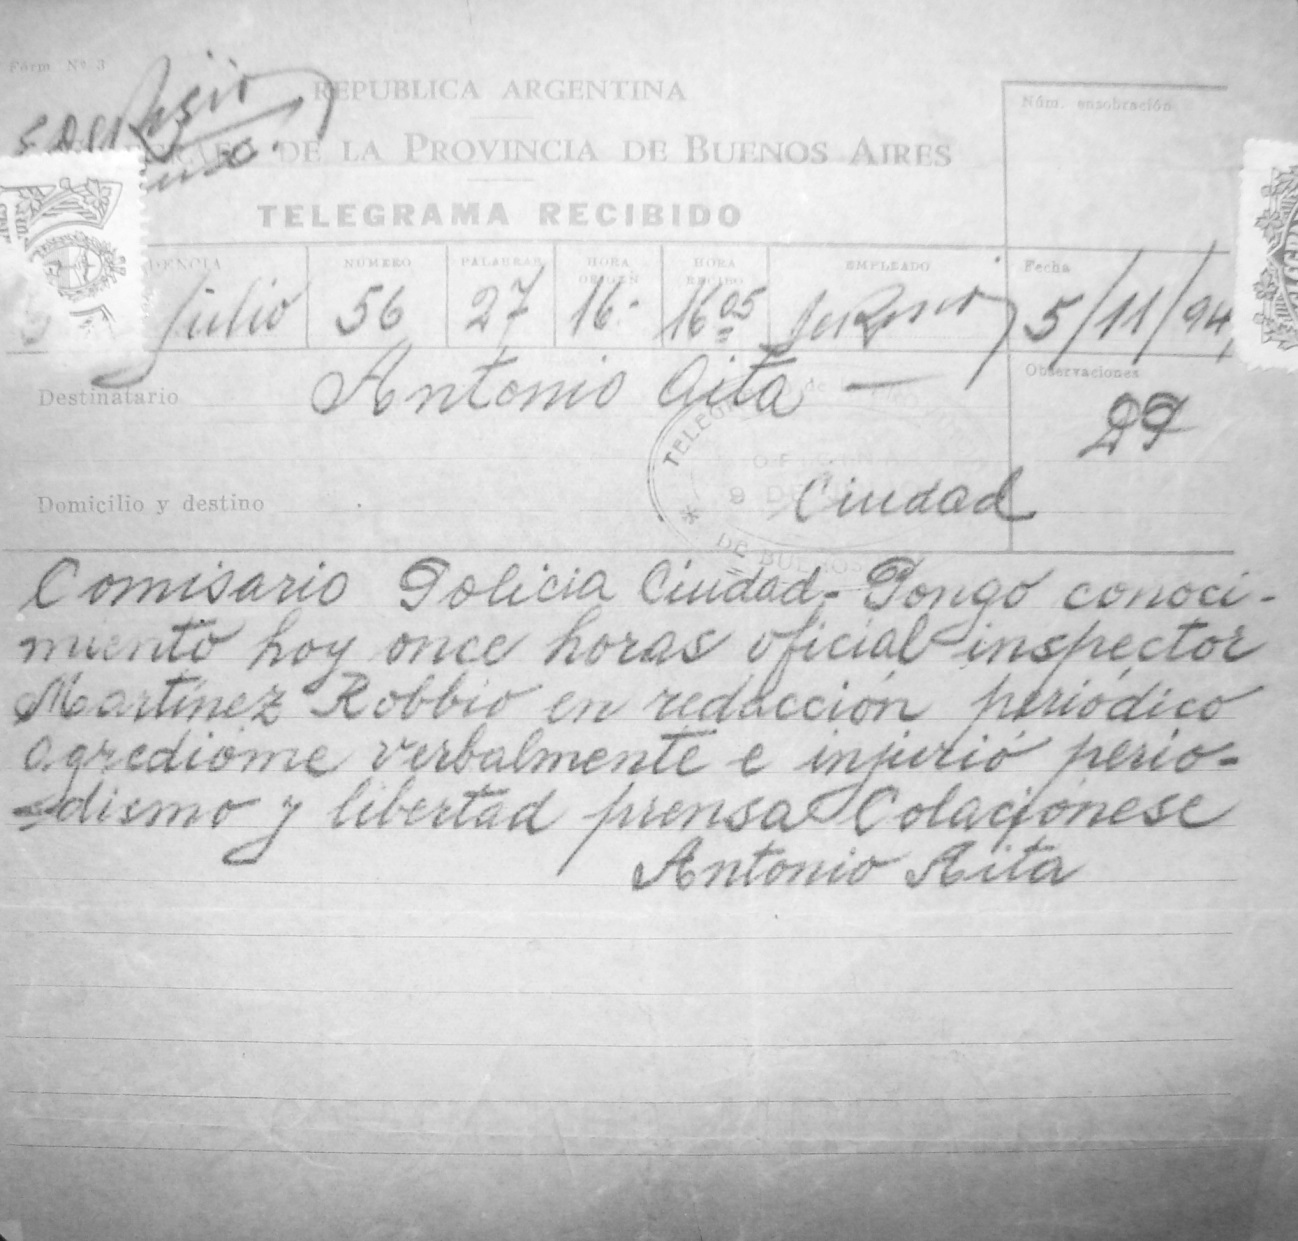 Form. Nº 3
REPUBLICA ARGENTINA
DE LA PROVINCIA DE BUENOS AIRES
TELEGRAMA RECIBIDO
Núm. ensobración
NÚMERO PALABRAS HORA ORIGEN HORA RECIBO EMPLEADO Fecha
Julio 56 27 16- 16 05 5/11/94
Destinatario Antonio Aita —
Observaciones
Domicilio y destino Ciudad
TELEG
OFICINA
9 DE
DE BUENOS
Comisario Policia Ciudad- Pongo conoci-
miento hoy once horas oficial inspector
Martínez Robbio en redacción periódico
agredióme verbalmente e injurió perio-
-dismo y libertad prensa Colaciónese
Antonio Aita